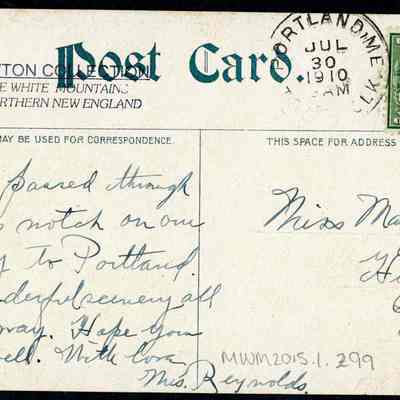 Post Card.
TON COLLECTION
E WHITE MOUNTAINS
RTHERN NEW ENGLAND
PORTLAND, ME.
JUL
30
1910
AM
MAY BE USED FOR CORRESPONDENCE.
THIS SPACE FOR ADDRESS
passed through
notch on our
to Portland.
nderful scenery all
way. Hope you
ell. With love
Mrs. Reynolds.
Miss Ma
MWM2015.1.299